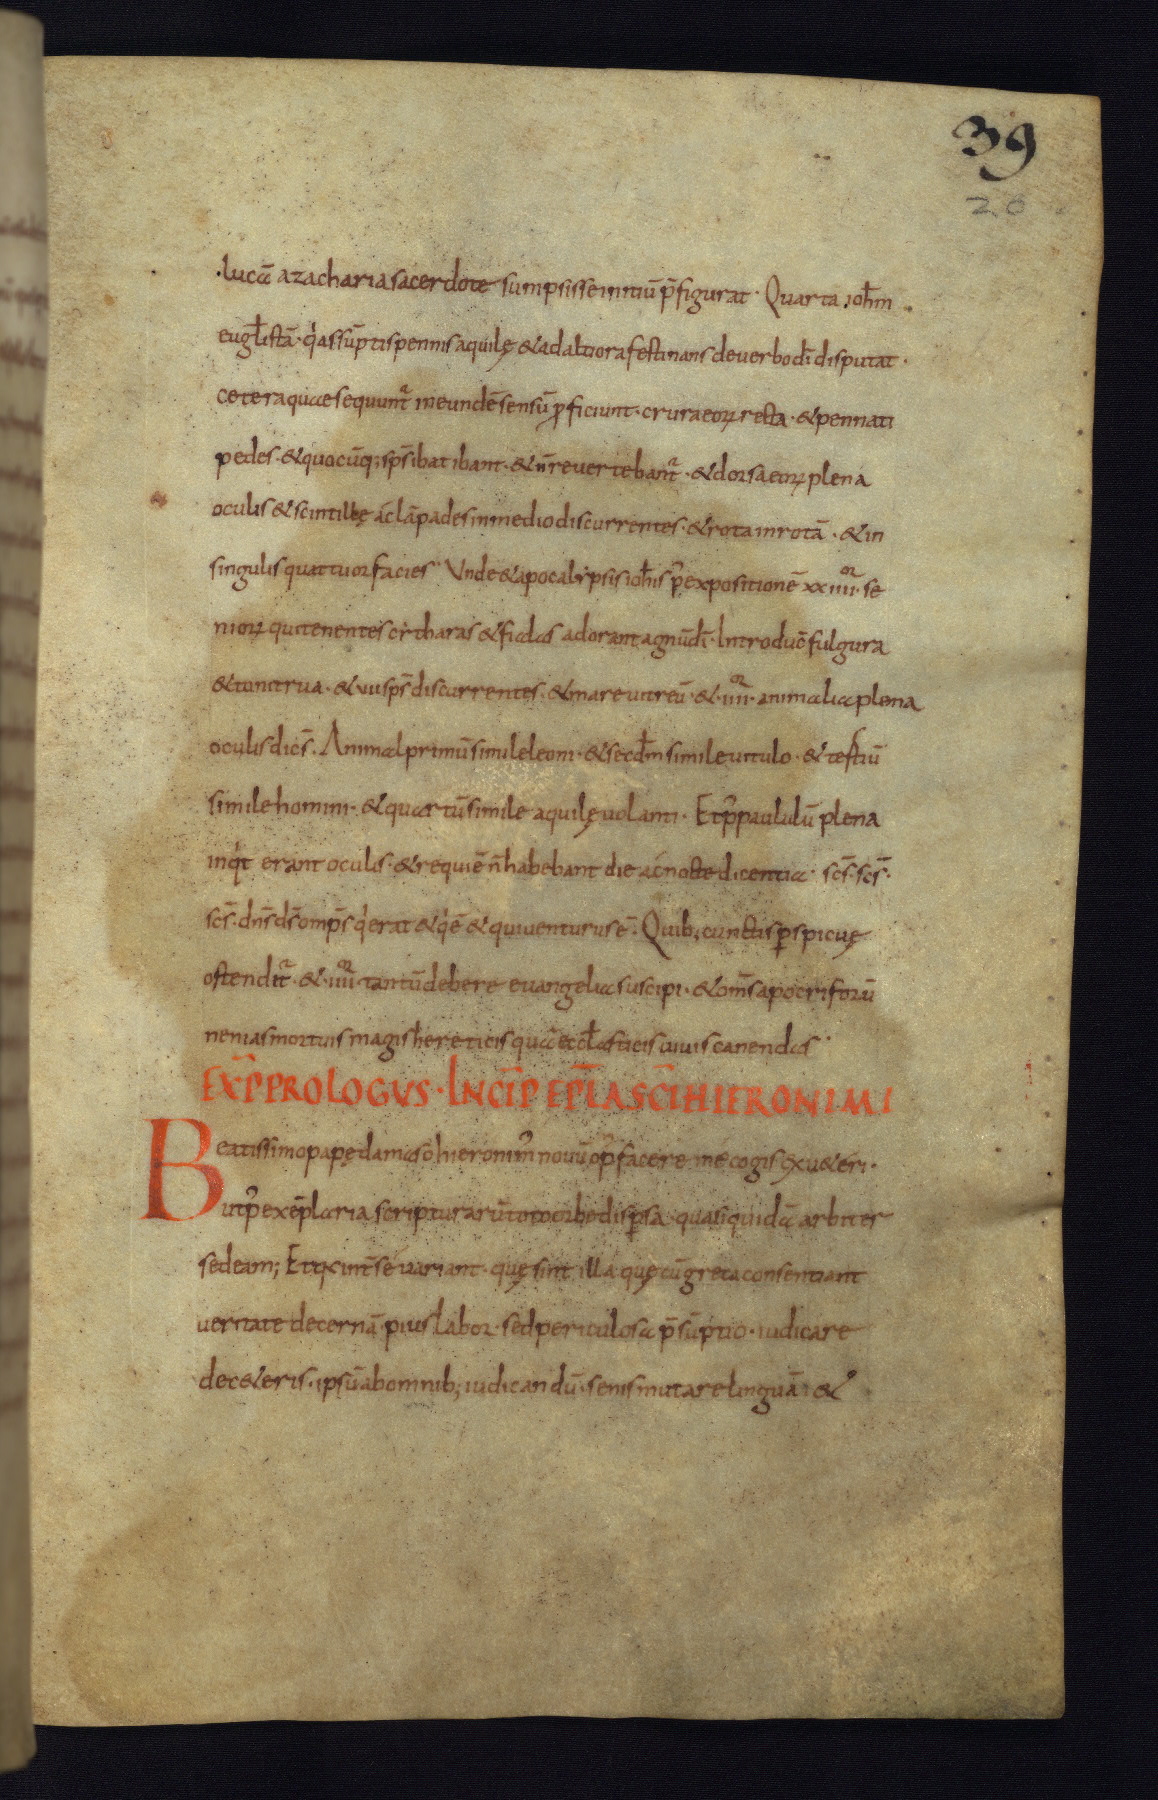 39
26
·lucā azacharia sacerdote sumpsisse initiū p̄figurat· Quarta ioh̄m
eugl̄istā· qi assūptis pennis aquilę & ad altiora festinans de uerbo dī disputat·
cetera quae sequunt᷑ in eundē sensū proficiunt· crura eoꝝ recta· & pennati
pedes· & quocūq; sps̄ ibat ibant· & n̄ reuertebant᷑· & dorsa eoꝝ plena
oculis & scintillę ac lāpades in medio discurrentes· & rota in rotā· & in
singulis quattuor facies· Vnde & apocalipsis ioh̄is p᷒ expositionē xxiiii or· se
nioꝝ qui tenentes citharas & fialas adorant agnū dī· Introduc̄ fulgura
& tonitrua· & uii sps̄ discurrentes· & mare uitreū· & ·iiii or· animalia plena
oculis dicēs· Animal primū simile leoni· & secdm̄ simile uitulo· & tertiū
simile homini· & quartū simile aquilę uolanti· Et p᷒ paululū plena
inqit erant oculis· & requiē n̄ habebant die ac nocte dicentia· scs̄· scs̄·
scs̄· dns̄ ds̄ omps̄ qi erat & qi ē & qui uenturus ē· Quib; cunctis perspicuę
ostendit᷑· & ·iiii or· tantū debere euangelia suscipi· & om̄s apocriforū
nenias mortuis magis hereticis quā ecclāsticis uiuis canendas·
EXP̄ PROLOGVS· INCIP̄ EPLĀ SCĪ HIERONIMI
Beatissimo papę damaso hieronim᷒ nouū op᷒ facere me cogis ex ueteri·
ut p᷒ exēplaria scripturarū toto orbe dispersa quasi quidā arbiter
sedeam; Et qa int̄ se uariant· quę sint illa quę cū greca consentiant
ueritate decernā· pius labor· sed periculosa p̄sūptio· iudicare
de c&eris· ipsū ab omnib; iudicandū· senis mutare linguā· &